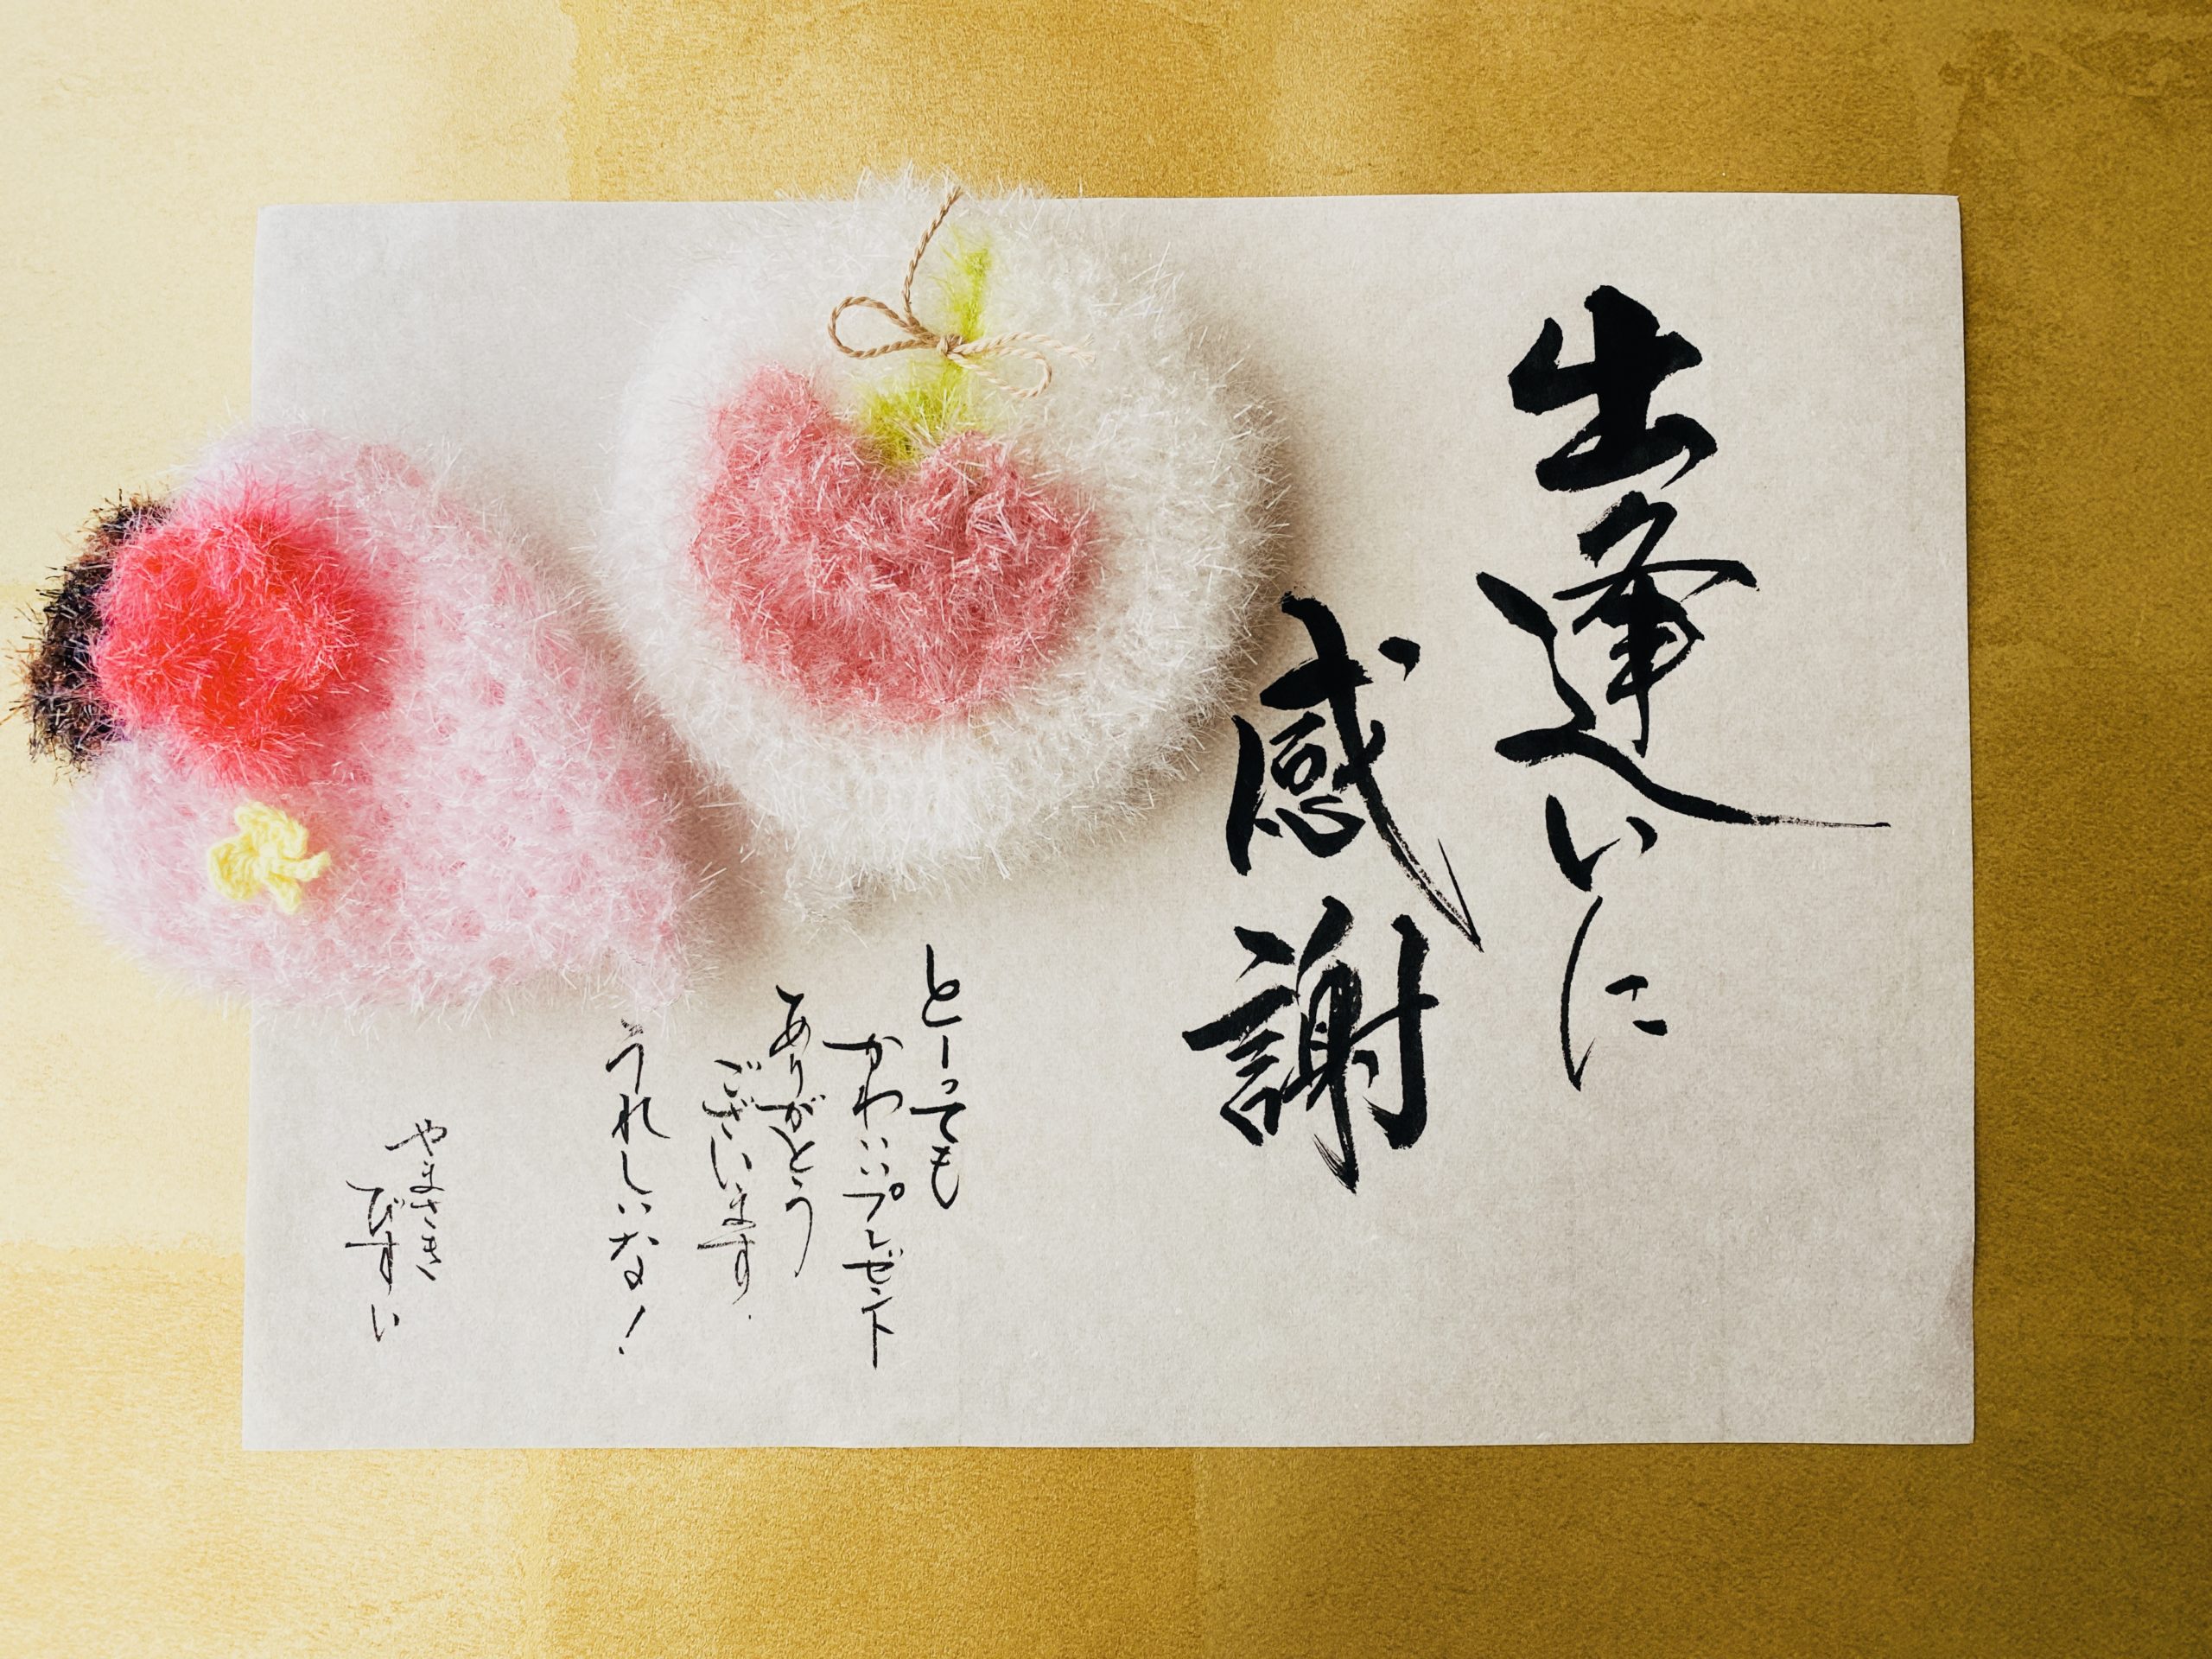 出逢いに
感謝
とーっても
かわいいプレゼント
ありがとう
ございます
うれしいな!
やまさき
びすい